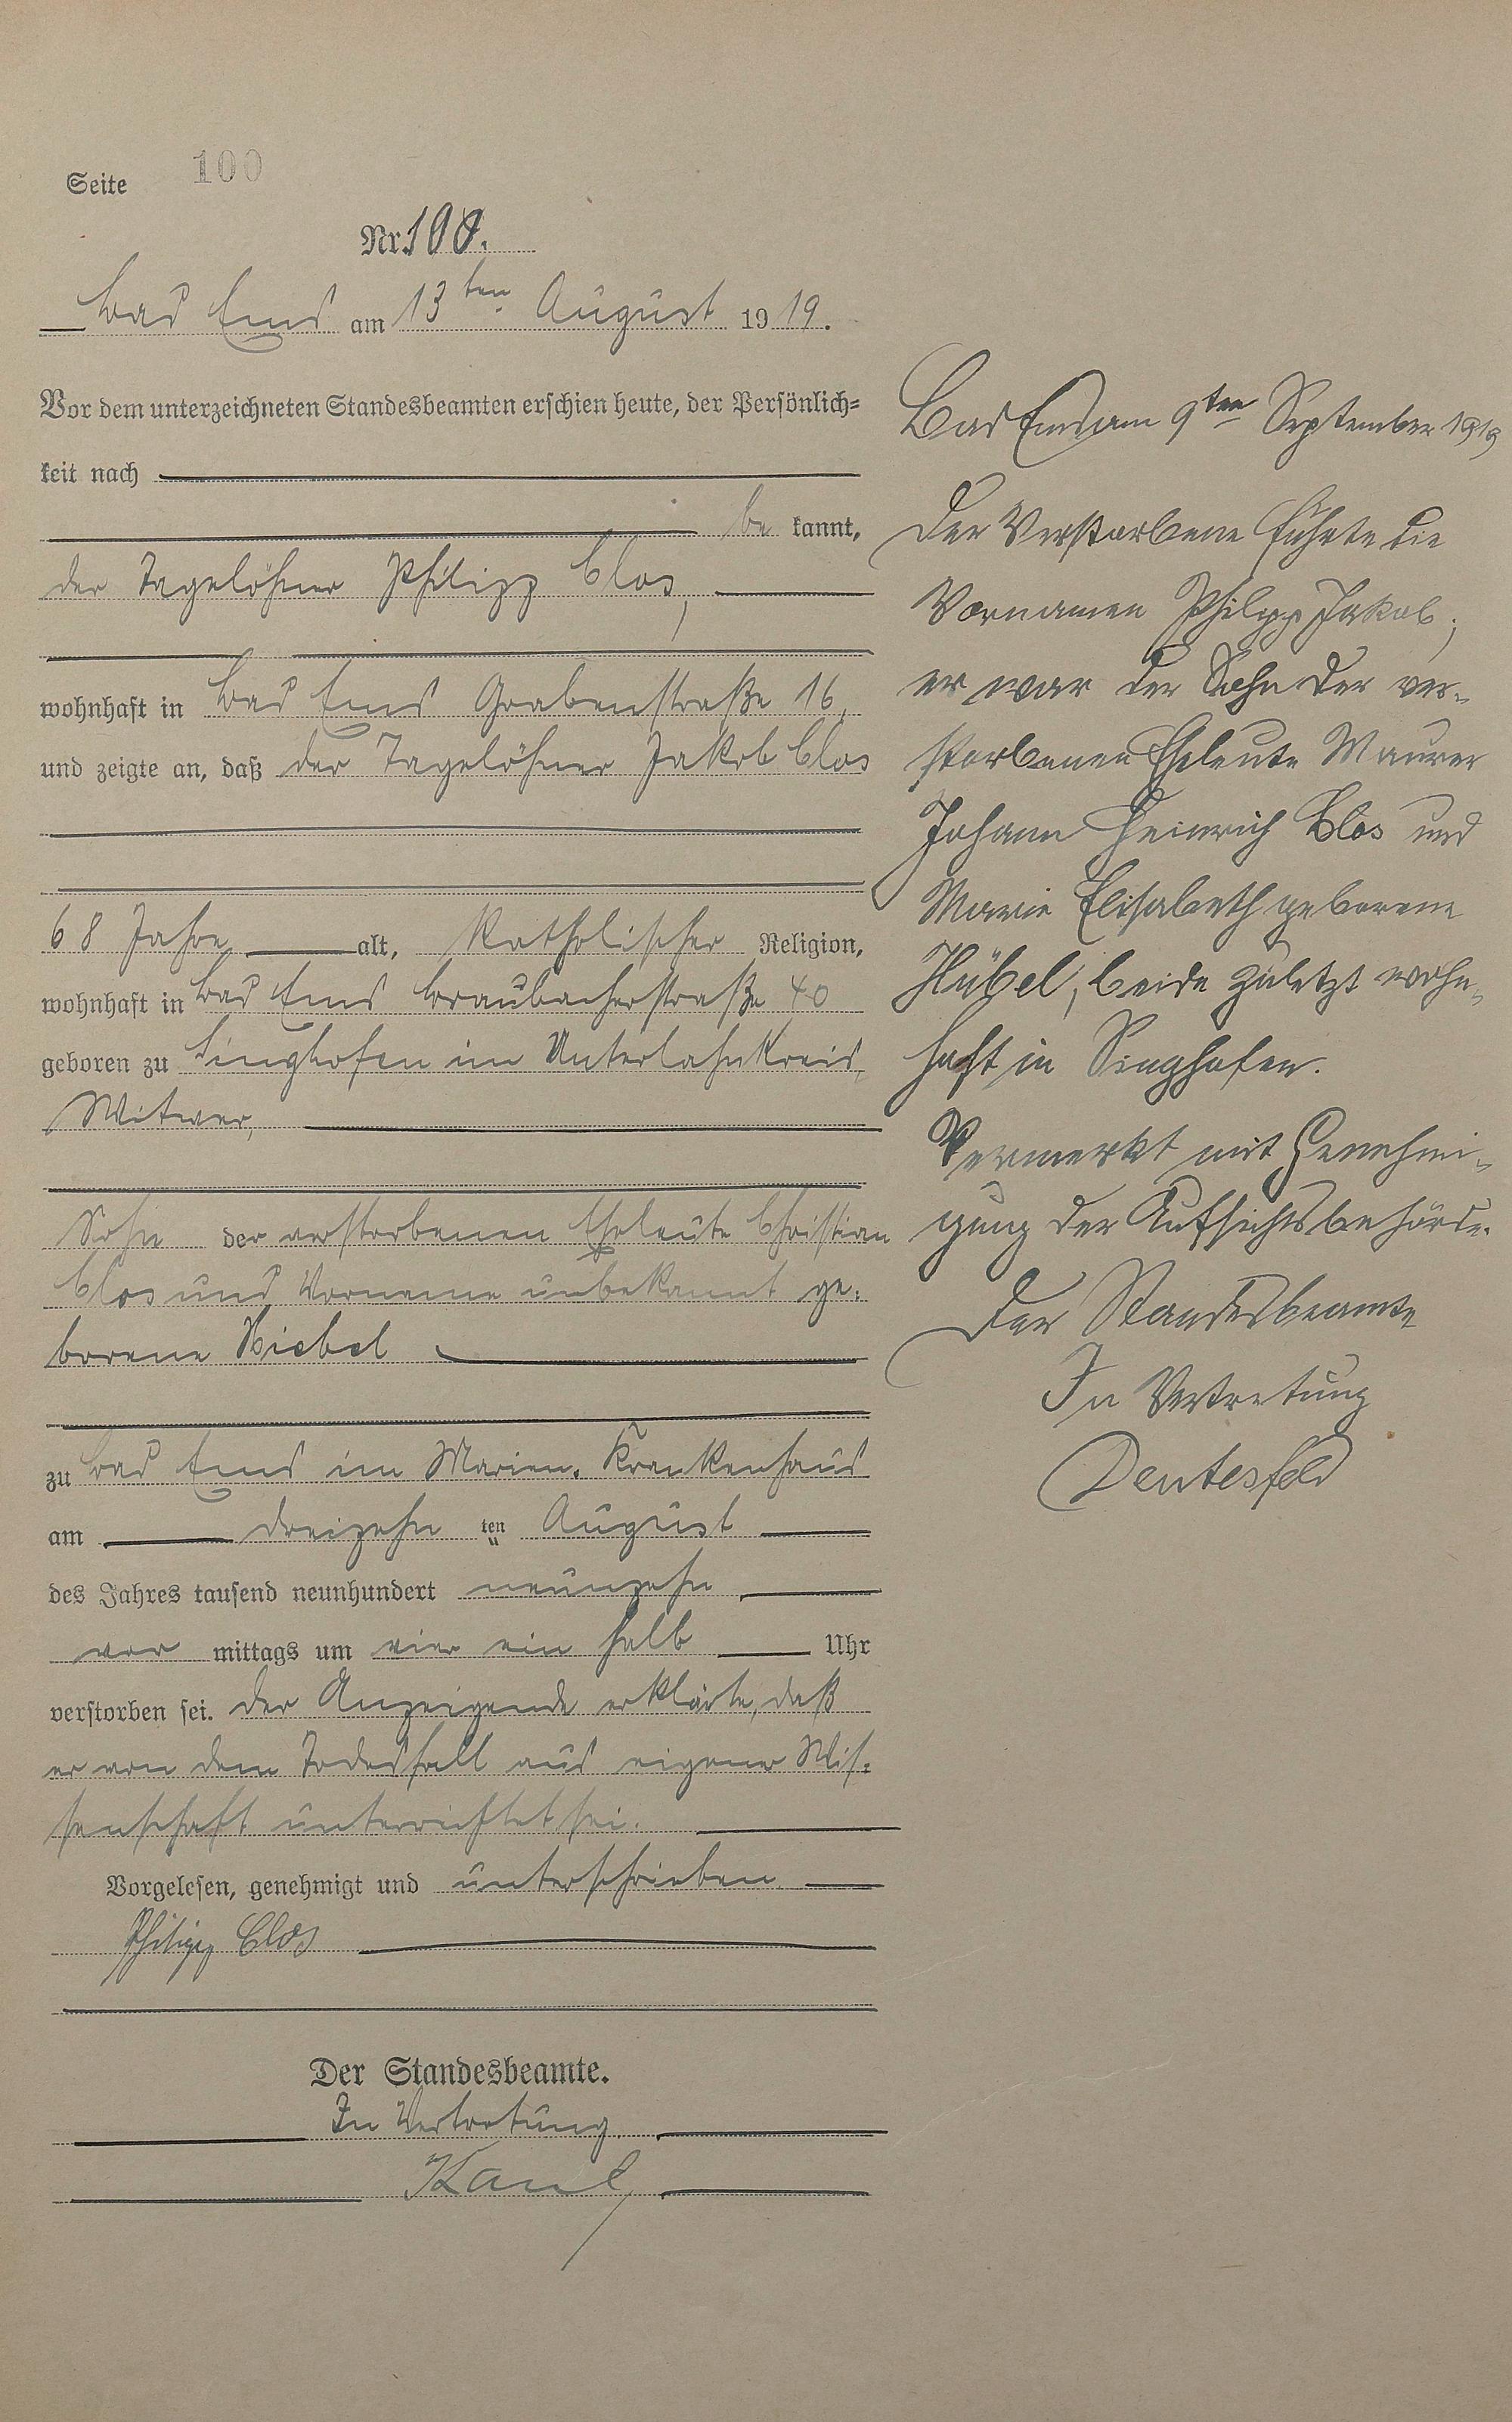 Seite 100
Nr. 100.
Bad Ems am 13ten August 1919.
Vor dem unterzeichneten Standesbeamten erschien heute, der Persönlich=
keit nach
be kannt,
der Tagelöhner Philipp Clos,
wohnhaft in Bad Ems Grabenstraße 16,
und zeigte an, daß der Tagelöhner Jakob Clos
68 Jahre alt, katholischer Religion,
wohnhaft in Bad Ems Braubacherstraße 40
geboren zu Singhofen im Unterlahnkreis,
Witwer,
Sohn der verstorbenen Eheleute Christian
Clos und Vorname unbekannt ge=
borene Hiebel
zu Bad Ems im Marien-Krankenhaus
am dreizehn ten August
des Jahres tausend neunhundert neunzehn
vor mittags um vier ein halb Uhr
verstorben sei. Der Anzeigende erklärte, daß
er von dem Todesfall aus eigener Wis=
senschaft unterrichtet sei.
Vorgelesen, genehmigt und unterschrieben
Philipp Clos
Der Standesbeamte.
In Vertretung.
Kaul
Bad Ems am 9ten September 1919
Der Verstorbene führte die
Vornamen Philipp Jakob;
er war der Sohn der ver=
storbenen Eheleute Maurer
Johann Heinrich Clos und
Marie Elisabeth geborene
Hübel, beide zuletzt wohn=
haft in Singhofen.
Vermerkt mit Genehmi=
gung der Aufsichtsbehörde.
Der Standesbeamte
In Vertretung